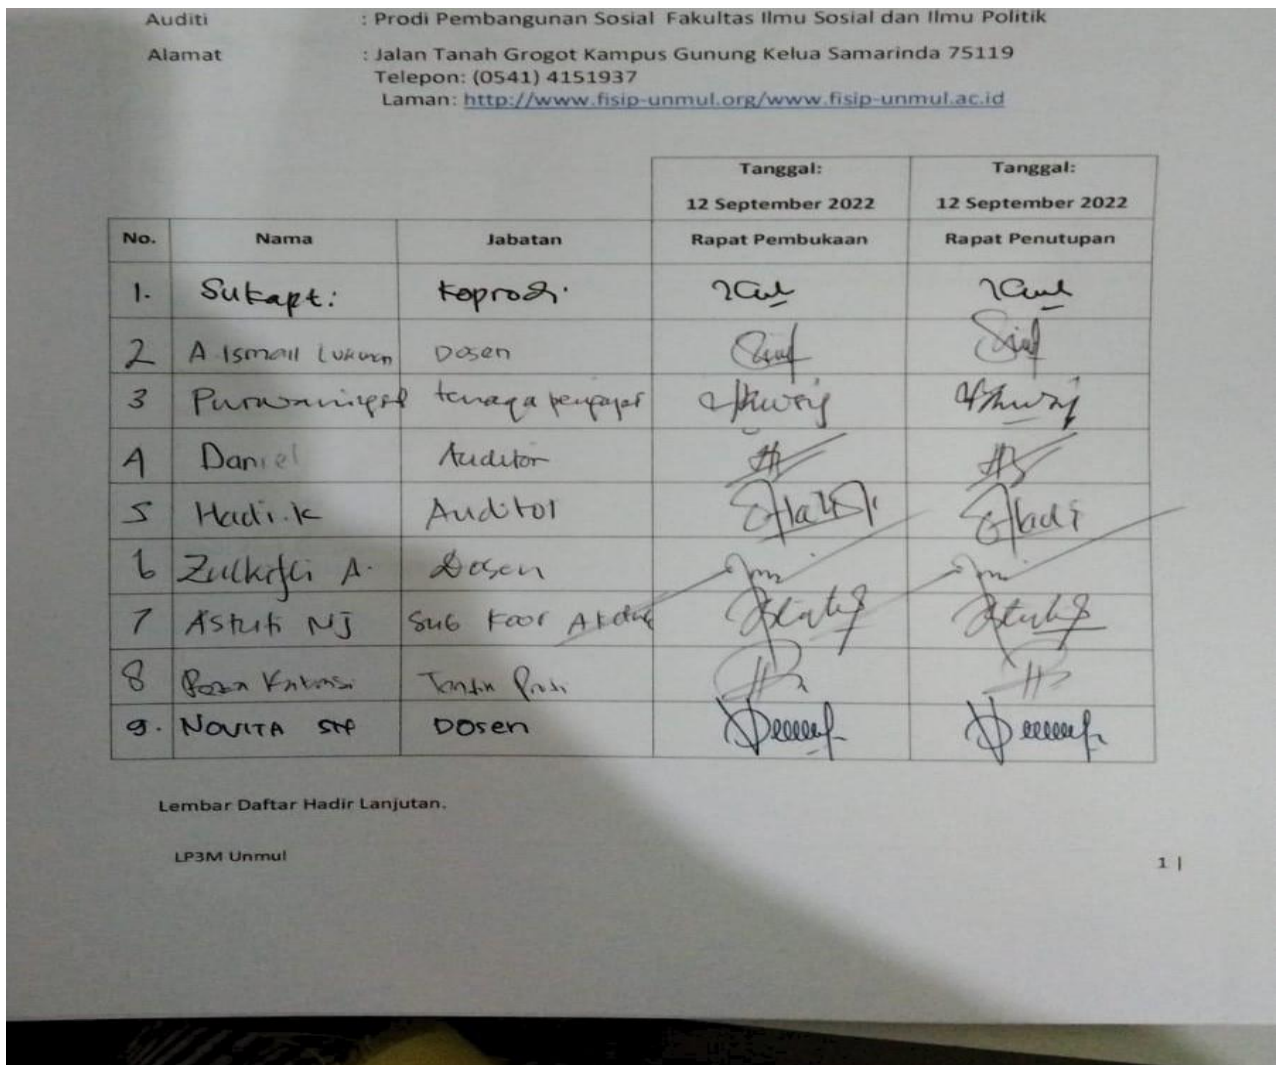 Auditi : Prodi Pembangunan Sosial Fakultas Ilmu Sosial dan Ilmu Politik
Alamat : Jalan Tanah Grogot Kampus Gunung Kelua Samarinda 75119
Telepon: (0541) 4151937
Laman: http://www.fisip-unmul.org/www.fisip-unmul.ac.id
Tanggal: Tanggal:
12 September 2022 12 September 2022
No. Nama Jabatan Rapat Pembukaan Rapat Penutupan
1. Sukapti Koprodi
2 A Ismail Lukman Dosen
3 Purwaningsih tenaga pengajar
4 Daniel Auditor
5 Hadi.K Auditor Hadi
6 Zulkifli A. Dosen
7 Astuti NJ Sub Koor
8
9. NOVITA Dosen
Lembar Daftar Hadir Lanjutan.
LP3M Unmul 1 |